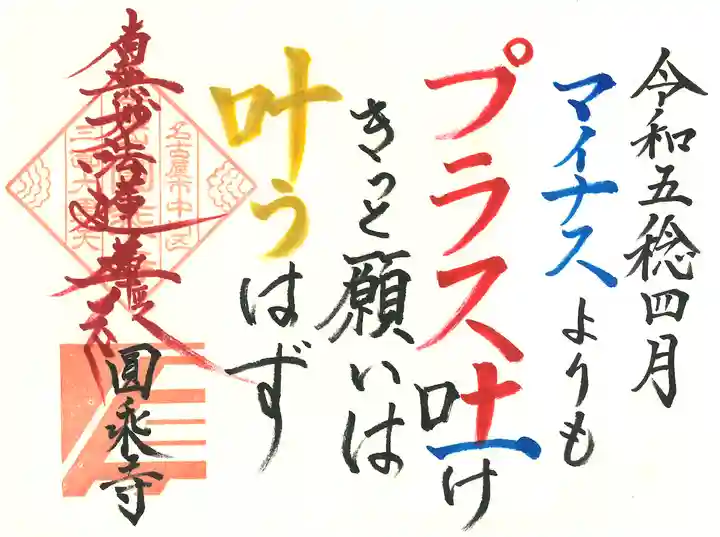 令和五稔四月
マイナスよりも
プラス吐け
きっと願いは
叶うはず
南無妙法蓮華経
名古屋市中区
圓乘寺